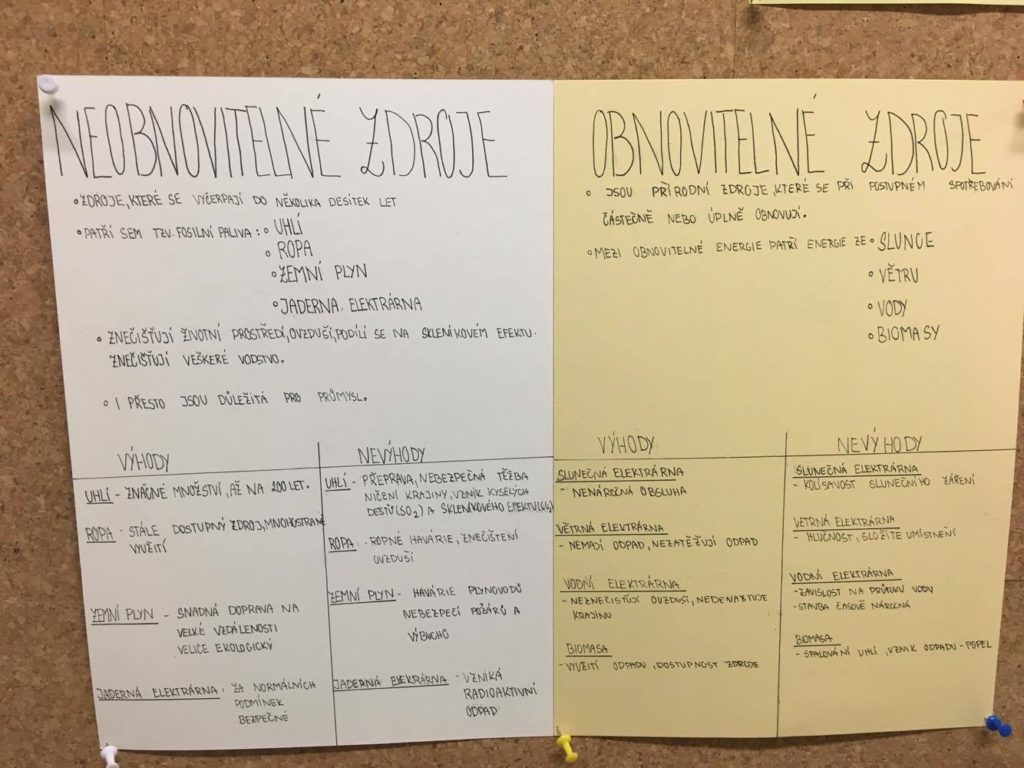 NEOBNOVITELNÉ ZDROJE
• ZDROJE, KTERÉ SE VYČERPAJÍ DO NĚKOLIKA DESÍTEK LET
• PATŘÍ SEM TZV. FOSILNÍ PALIVA: • UHLÍ
• ROPA
• ZEMNÍ PLYN
• JADERNA ELEKTRÁRNA
• ZNEČIŠŤUJÍ ŽIVOTNÍ PROSTŘEDÍ, OVZDUŠÍ, PODÍLÍ SE NA SKLENÍKOVÉM EFEKTU.
ZNEČIŠŤUJÍ VEŠKERÉ VODSTVO.
• I PŘESTO JSOU DŮLEŽITÁ PRO PRŮMYSL.
VÝHODY
UHLÍ - ZNAČNÉ MNOŽSTVÍ, AŽ NA 200 LET.
ROPA - STÁLE DOSTUPNÝ ZDROJ, MNOHOSTRANÉ
VYUŽITÍ
ZEMNÍ PLYN - SNADNÁ DOPRAVA NA
VELKÉ VZDÁLENOSTI
VELICE EKOLOGICKÝ
JADERNÁ ELEKTRÁRNA: ZA NORMÁLNÍCH
PODMÍNEK
BEZPEČNÉ
NEVÝHODY
UHLÍ - PŘEPRAVA, NEBEZPEČNÁ TĚŽBA
NIČENÍ KRAJINY, VZNIK KYSELÝCH
DEŠŤŮ (SO2) A SKLENÍKOVÉHO EFEKTU
ROPA - ROPNÉ HAVÁRIE, ZNEČIŠTENÍ
OVZDUŠÍ
ZEMNÍ PLYN - HAVÁRIE PLYNOVODŮ
NEBEZPEČÍ POŽÁRŮ A
VÝBUCHŮ
JADERNÁ ELEKTRÁRNA - VZNIKÁ
RADIOAKTIVNÍ
ODPAD
OBNOVITELNÉ ZDROJE
• JSOU PŘÍRODNÍ ZDROJE, KTERÉ SE PŘI POSTUPNÉM SPOTŘEBOVÁNÍ
ČÁSTEČNĚ NEBO ÚPLNĚ OBNOVUJÍ.
• MEZI OBNOVITELNÉ ENERGIE PATŘÍ ENERGIE ZE • SLUNCE
• VĚTRU
• VODY
• BIOMASY
VÝHODY
SLUNEČNÁ ELEKTRÁRNA
- NENÁROČNÁ OBSLUHA
VĚTRNÁ ELEKTRÁRNA
- NEMAJÍ ODPAD, NEZATĚŽUJÍ ODPAD
VODNÍ ELEKTRÁRNA
- NEZNEČISŤUJÍ OVZDUŠÍ,
KRAJINU
BIOMASA
- VYUŽITÍ ODPADU, DOSTUPNOST ZDROJE
NEVÝHODY
SLUNEČNÁ ELEKTRÁRNA
- KOLÍSAVOST SLUNEČNÍHO ZÁŘENÍ
VĚTRNÁ ELEKTRÁRNA
- HLUČNOST, SLOŽITÉ UMÍSTNĚNÍ
VODNÍ ELEKTRÁRNA
- ZÁVISLOST NA PRŮTOKU VODY
- STAVBA ČASOVĚ NÁROČNÁ
BIOMASA
- SPALOVÁNÍ UHLÍ, VZNIK ODPADU - POPEL